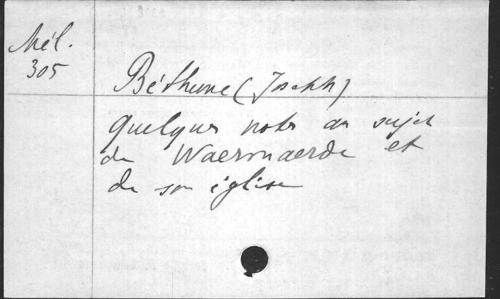 Mél.
305
Béthune (Joseph)
Quelques notes au sujet
de Waermaerde et
de son église